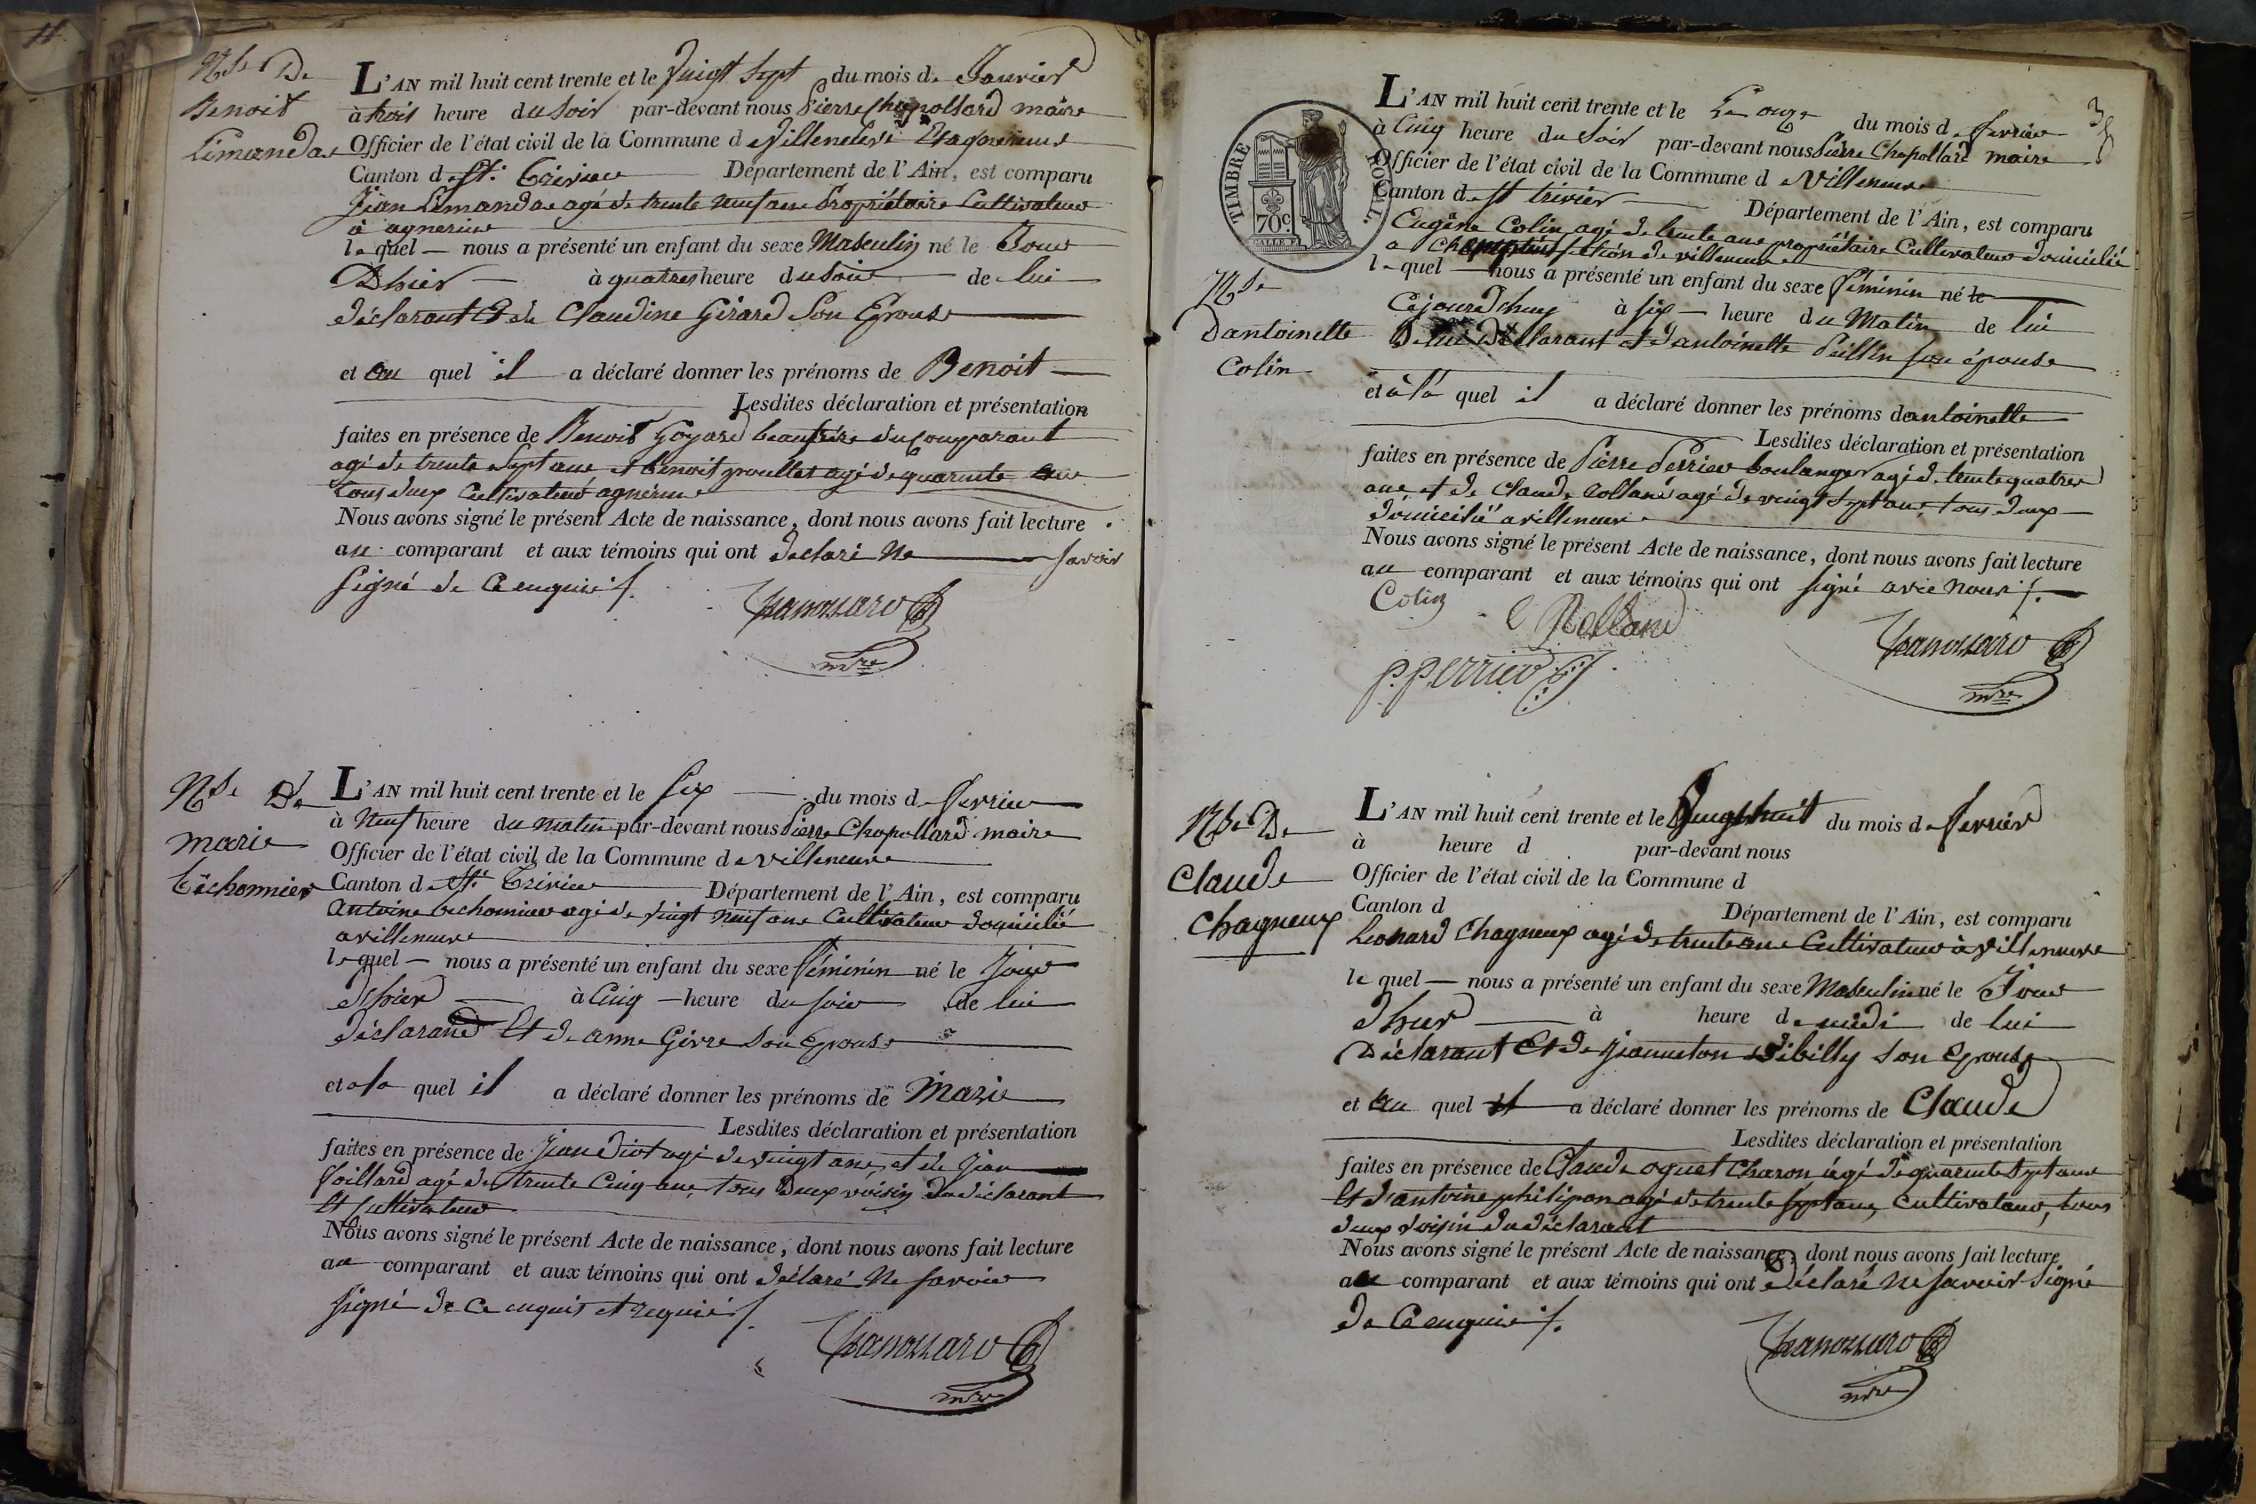 Nse De
Benoit
Limandas
L'AN mil huit cent trente et le vingt sept du mois de Janvier
à trois heure du soir par-devant nous Pierre Chapollard maire
Officier de l'état civil de la Commune de Villeneuve et agnereins
Canton de St. Trivier Département de l'Ain, est comparu
Jean Limandas agé de trente neuf ans Propriétaire Cultivateur
à agnerins
le quel nous a présenté un enfant du sexe Masculin né le Jour
Dhier à quatres heure du soir de lui
déclarant Et de Claudine Girard Son Epouse
et au quel il a déclaré donner les prénoms de Benoit
Lesdites déclaration et présentation
faites en présence de Benoit Goyard beaufrère du Comparant
agé de trente Sept ans et benoit agé de quarante ans
tous deux Cultivateur
Nous avons signé le présent Acte de naissance, dont nous avons fait lecture
au comparant et aux témoins qui ont déclaré Ne savoir
signé de Ce enquis /.
mre
Nse De
marie
béchonnier
L'AN mil huit cent trente et le six du mois de fevrier
à Neuf heure du matin par-devant nous Pierre Chapollard maire
Officier de l'état civil de la Commune de villeneuve
Canton de St. Trivier Département de l'Ain, est comparu
antoine bechonnier agé de vingt neuf ans Cultivateur domicilié
a villeneuve
le quel nous a présenté un enfant du sexe féminin né le Jour
dhier à Cinq heure du soir de lui
déclarand Et de anne Givre son Epouse
et a la quel il a déclaré donner les prénoms de Marie
Lesdites déclaration et présentation
faites en présence de Jean Diot agé de vingt ans, et de Jean
foillard agé de trente Cinq ans, tous deux voisin du déclarant
Et Cultivateur
Nous avons signé le présent Acte de naissance, dont nous avons fait lecture
au comparant et aux témoins qui ont déclaré Ne savoir
signé de Ce enquis et requis /.
mre
35
TIMBRE ROYAL.
70c.
L'AN mil huit cent trente et le Le onze du mois de fevrier
à Cinq heure du soir par-devant nous Pierre Chapollard maire
Officier de l'état civil de la Commune de Villeneuve
Canton de St trivier Département de l'Ain, est comparu
Eugène Colin agé de trente ans propriétaire Cultivateur domicilié
a section de villeneuve
le quel nous a présenté un enfant du sexe féminin né le
Nse
Dantoinette
Colin
Cejourdhuy à six heure du Matin de lui
De lui Déclarant et d'antoinette Peillin son épouse
et à la quel il a déclaré donner les prénoms de antoinette
Lesdites déclaration et présentation
faites en présence de Pierre Perrier boulanger agé de trente quatres
ans et de Claude Rolland agé de vingt sept ans, tous deux
domicilié a villeneuve
Nous avons signé le présent Acte de naissance, dont nous avons fait lecture
au comparant et aux témoins qui ont signé avec Nous /.
Colin
C Rolland
P. Perrier
mre
Nse De
Claude
Chagneux
L'AN mil huit cent trente et le vingt huit du mois de fevrier
à heure d par-devant nous
Officier de l'état civil de la Commune d
Canton d Département de l'Ain, est comparu
Leonard Chagneux agé de trente ans Cultivateur à Villeneuve
le quel nous a présenté un enfant du sexe Masculin né le Jour
dhier à heure de midi de lui
Déclarant Et de Jeanneton Dibilly son Epouse
et au quel il a déclaré donner les prénoms de Claude
Lesdites déclaration et présentation
faites en présence de Claude oguet Charon âgé de quarante sept ans
Et d'antoine philipon agé de trente sept ans, Cultivateur, tous
deux Voisin du déclarant
Nous avons signé le présent Acte de naissance, dont nous avons fait lecture
au comparant et aux témoins qui ont déclaré Ne savoir signé
de Ce enquis /.
mre